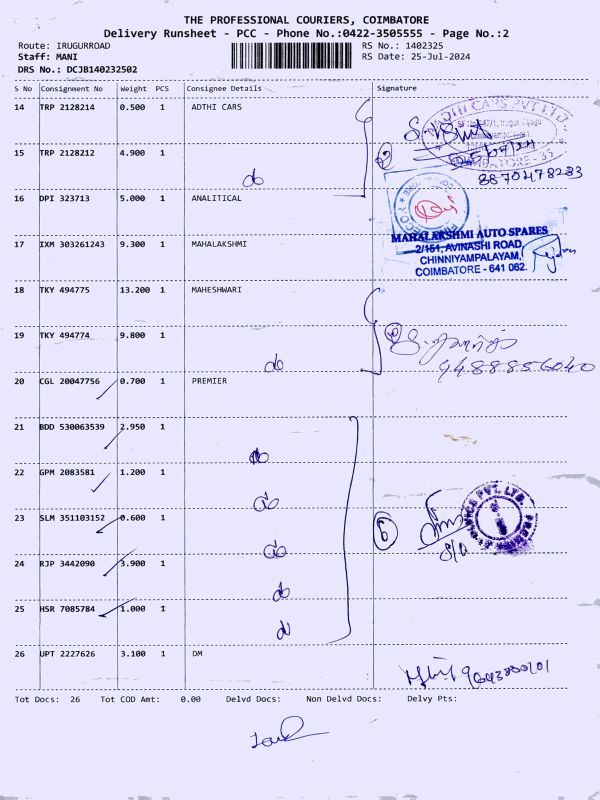 THE PROFESSIONAL COURIERS, COIMBATORE
Delivery Runsheet - PCC - Phone No.:0422-3505555 - Page No.:2
Route: IRUGURROAD RS No.: 1402325
Staff: MANI RS Date: 25-Jul-2024
DRS No.: DCJB140232502
S No Consignment No Weight PCS Consignee Details Signature
14 TRP 2128214 0.500 1 ADTHI CARS
15 TRP 2128212 4.900 1 do
8870478233
16 DPI 323713 5.000 1 ANALITICAL
17 IXM 303261243 9.300 1 MAHALAKSHMI
MAHALAKSHMI AUTO SPARES
2/151, AVINASHI ROAD,
CHINNIYAMPALAYAM,
COIMBATORE - 641 062.
18 TKY 494775 13.200 1 MAHESHWARI
19 TKY 494774 9.800 1 do
9488856040
20 CGL 20047756 0.700 1 PREMIER
21 BDD 530063539 2.950 1 do
22 GPM 2083581 1.200 1 do
23 SLM 351103152 0.600 1 do
6
24 RJP 3442090 3.900 1 do
25 HSR 7085784 1.000 1 do
26 UPT 2227626 3.100 1 DM
Tot Docs: 26 Tot COD Amt: 0.00 Delvd Docs: Non Delvd Docs: Delvy Pts: